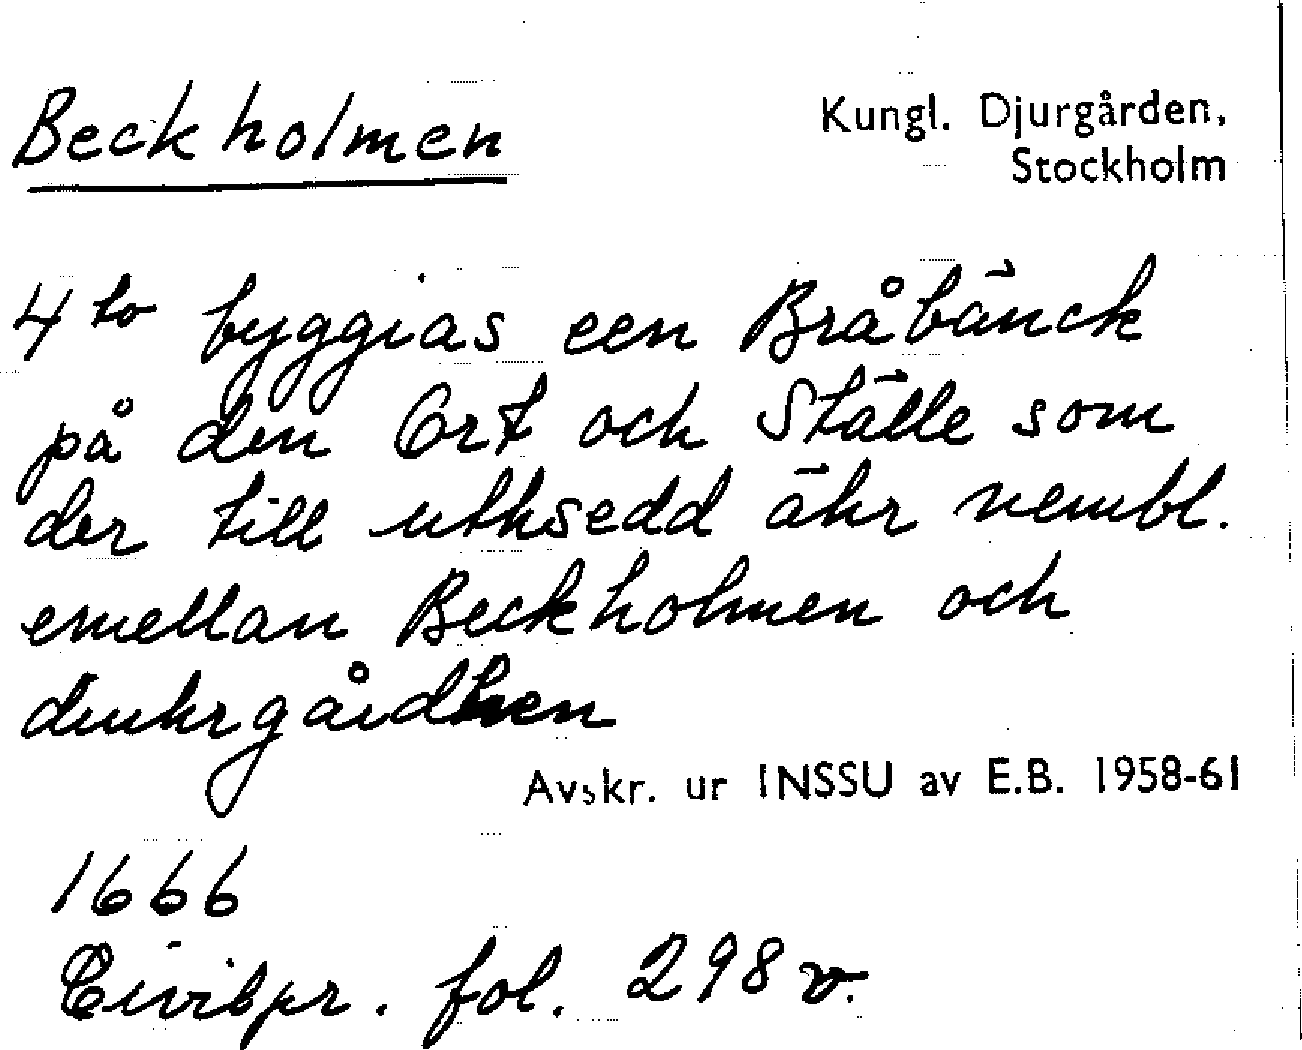 Beckholmen
Kungl. Djurgården,
Stockholm
4to byggias een Bråbänck
på den Ort och Ställe som
der till uthsedd ähr nembl.
emellan Beckholmen och
diuhrgårdhen
Avskr. ur INSSU av E.B. 1958-61
1666
Civilpr. fol. 298 v.